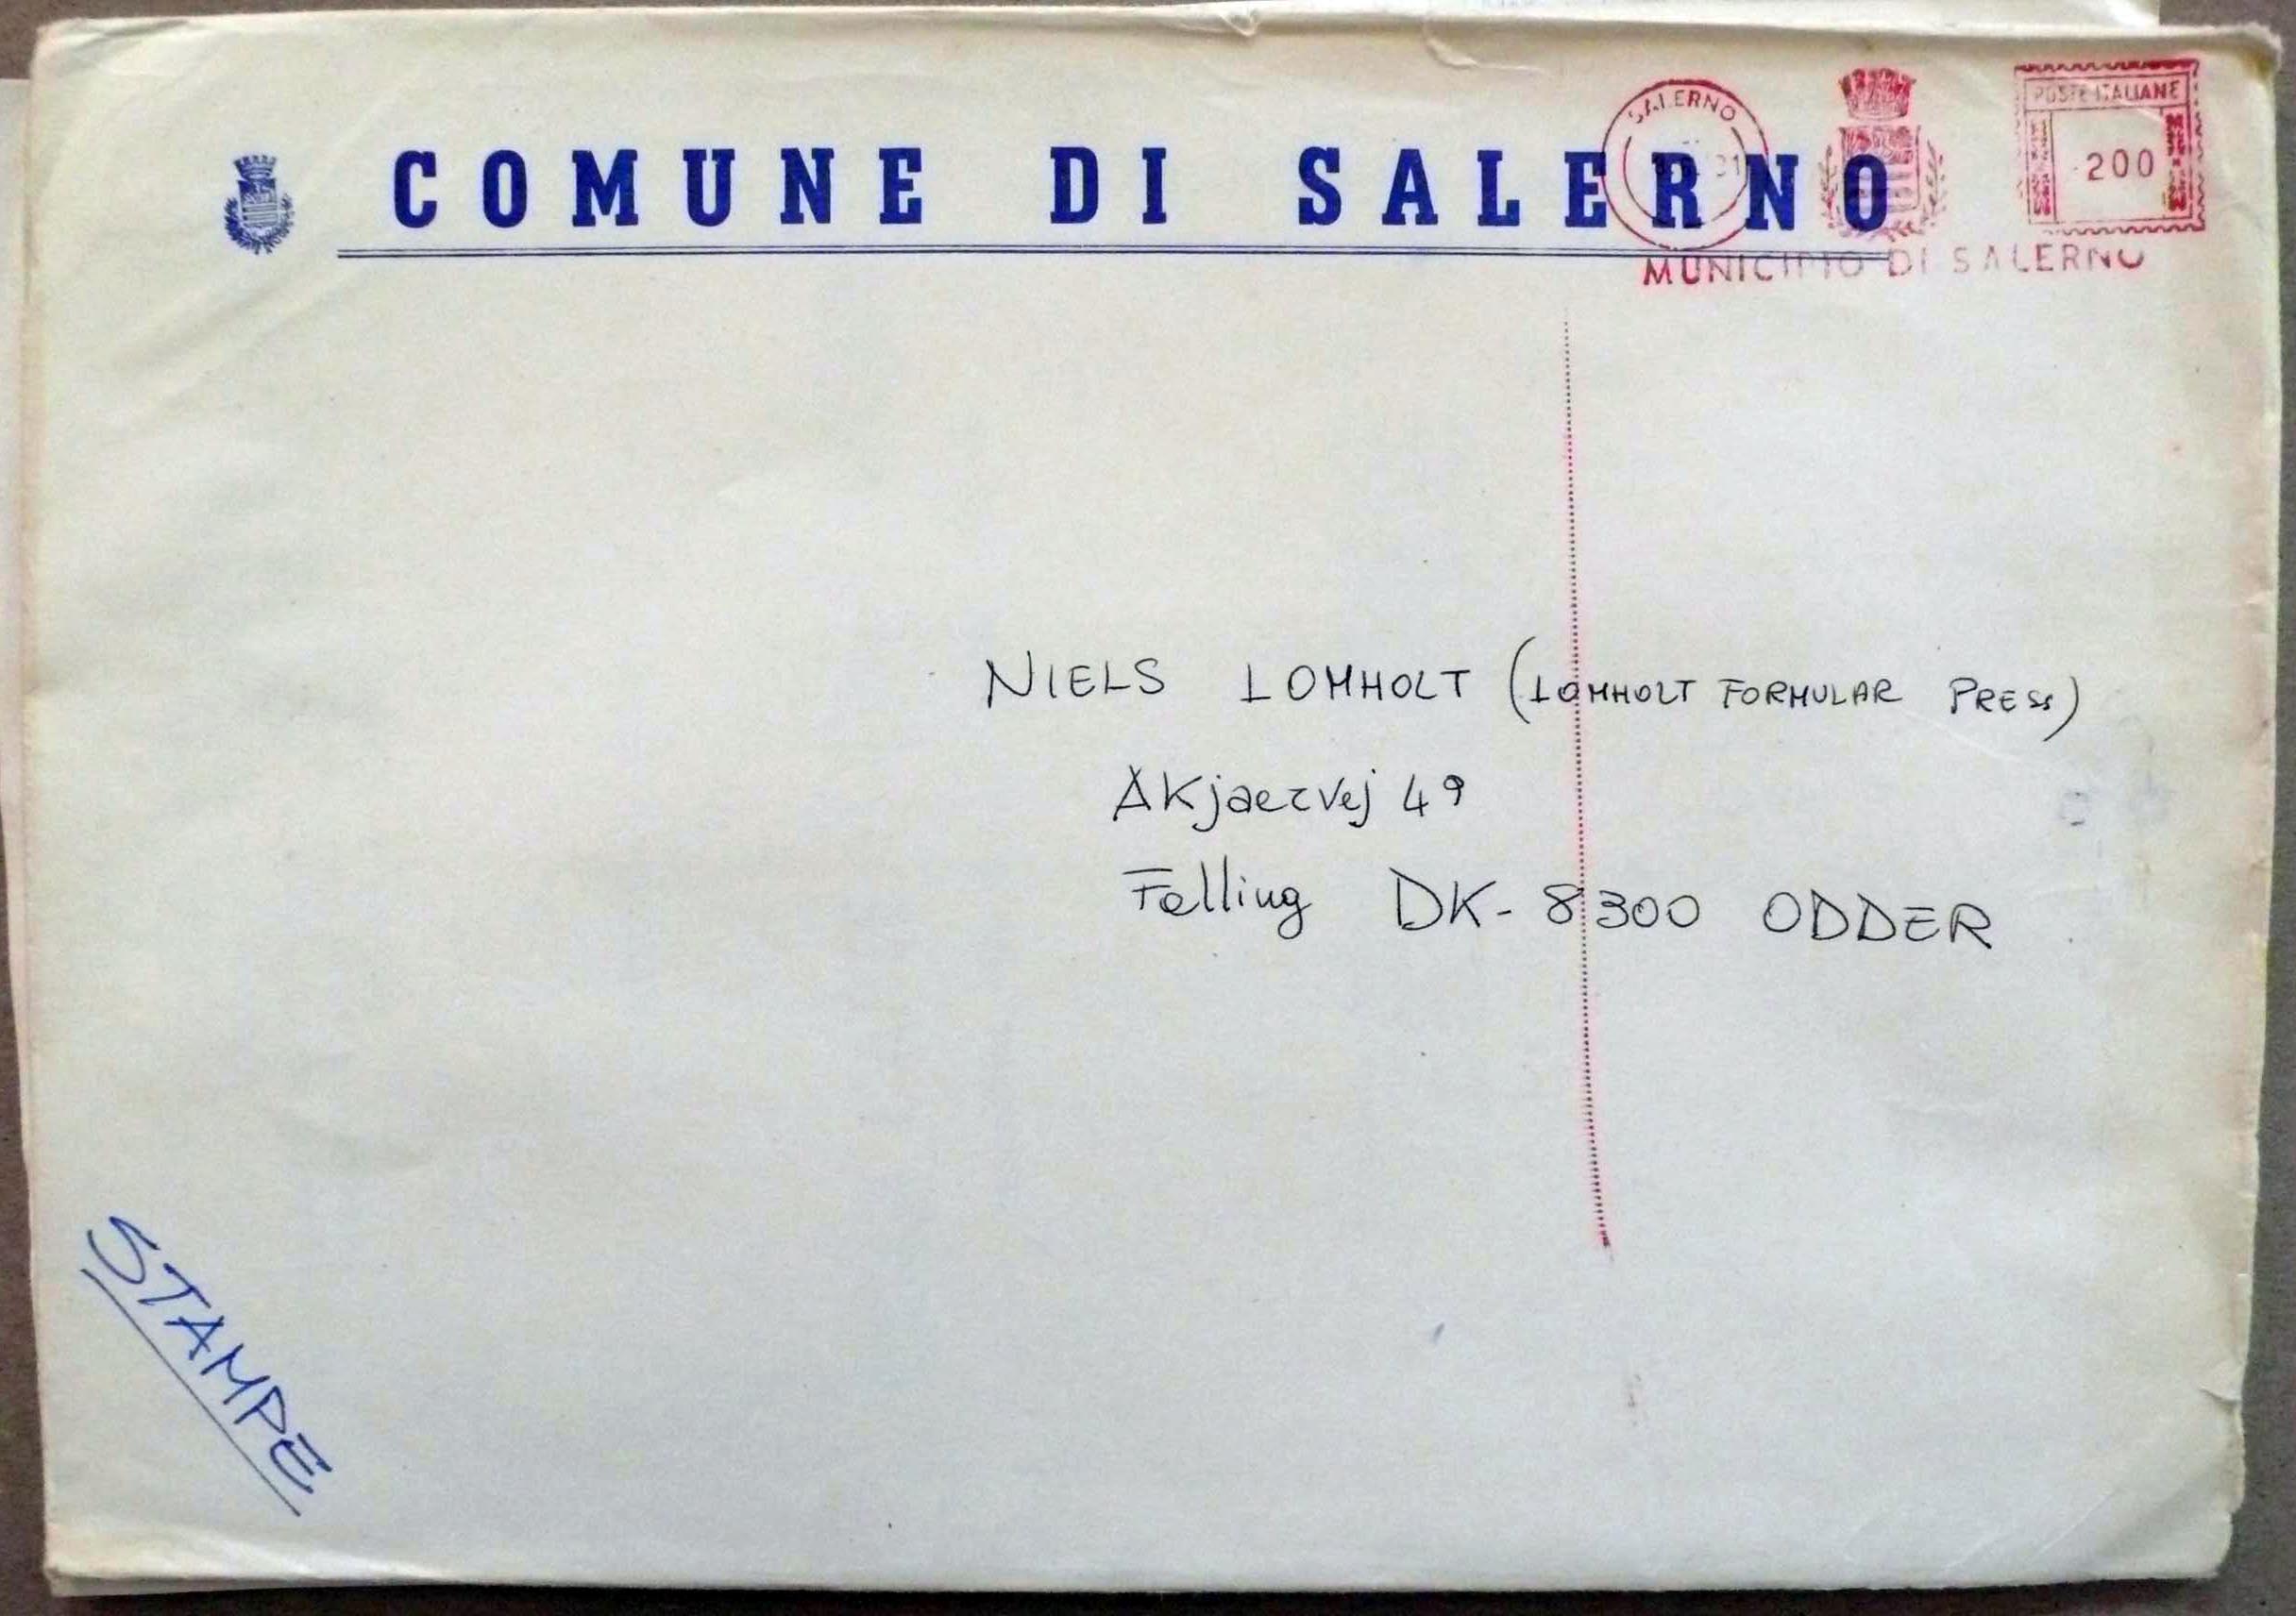 SALERNO
POSTE ITALIANE
200
COMUNE DI SALERNO
MUNICIPIO DI SALERNO
NIELS LOMHOLT (LOMHOLT FORMULAR PRESS)
AKjaervej 49
Falling DK-8300 ODDER
STAMPE